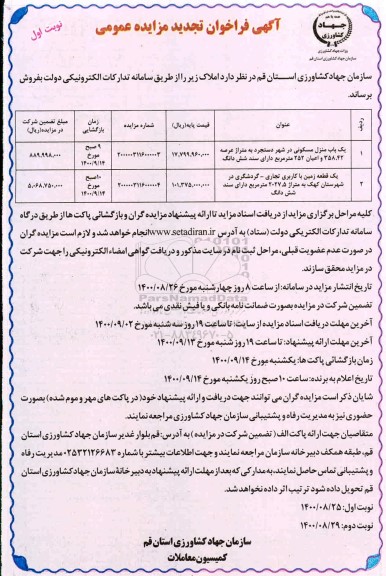 نوبت اول
آگهی فراخوان تجدید مزایده عمومی
جهاد کشاورزی
وزارت جهاد کشاورزی
سازمان جهاد کشاورزی استان قم
سازمان جهاد کشاورزی استان قم در نظر دارد املاک زیر را از طریق سامانه تدارکات الکترونیکی دولت بفروش
برساند.
ردیف عنوان قیمت پایه(ریال) شماره مزایده زمان بازگشایی مبلغ تضمین شرکت در مزایده(ریال)
۱ یک باب منزل مسکونی در شهر دستجرد به متراژ عرصه ۳۵۸.۴۲ و اعیان ۲۵۲ مترمربع دارای سند شش دانگ ۱۷,۷۹۹,۹۶۰,۰۰۰ ۲۰۰۰۰۰۳۱۱۶۰۰۰۰۰۳ ۹ صبح مورخ ۱۴۰۰/۹/۱۴ ۸۸۹,۹۹۸,۰۰۰
۲ یک قطعه زمین با کاربری تجاری - گردشگری در شهرستان کهک به متراژ ۲۰۲۷.۵ مترمربع دارای سند شش دانگ ۱۰۱,۳۷۵,۰۰۰,۰۰۰ ۲۰۰۰۰۰۳۱۱۶۰۰۰۰۰۴ ۱۰صبح مورخ ۱۴۰۰/۹/۱۴ ۵,۰۶۸,۷۵۰,۰۰۰
کلیه مراحل برگزاری مزایده از دریافت اسناد مزایده تا ارائه پیشنهاد مزایده گران و بازگشائی پاکت ها از طریق درگاه
سامانه تدارکات الکتریکی دولت (ستاد) به آدرس www.setadiran.ir انجام خواهد شد و لازم است مزایده گران
در صورت عدم عضویت قبلی، مراحل ثبت نام در سایت مذکور و دریافت گواهی امضاء الکترونیکی را جهت شرکت
در مزایده محقق سازند.
تاریخ انتشار مزایده در سامانه: از ساعت ۸ روز چهارشنبه مورخ ۱۴۰۰/۰۸/۲۶
تضمین شرکت در مزایده بصورت ضمانت نامه بانکی و یا فیش نقدی می باشد.
آخرین مهلت دریافت اسناد مزایده از سایت: تا ساعت ۱۹ روز سه شنبه مورخ ۱۴۰۰/۰۹/۰۲
آخرین مهلت ارائه پیشنهاد: تا ساعت ۱۹ روز شنبه مورخ ۱۴۰۰/۰۹/۱۳
زمان بازگشائی پاکت ها: یکشنبه مورخ ۱۴۰۰/۰۹/۱۴
تاریخ اعلام به برنده: ساعت ۱۰ صبح روز یکشنبه مورخ ۱۴۰۰/۰۹/۱۴
شایان ذکر است مزایده گران می توانند جهت دریافت و ارائه پیشنهاد خود( در پاکت های مهر و موم شده) بصورت
حضوری نیز به مدیریت رفاه و پشتیبانی سازمان جهاد کشاورزی مراجعه نمایند.
متقاضیان جهت ارائه پاکت الف( تضمین شرکت در مزایده ) به آدرس: قم بلوار غدیر سازمان جهاد کشاورزی استان
قم، طبقه همکف دبیرخانه سازمان مراجعه نمایند و جهت اطلاعات بیشتر با شماره ۰۲۵۳۲۱۲۶۶۸۳ مدیریت رفاه
و پشتیبانی تماس حاصل نمایند، به مدارکی که بعد از مهلت ارائه پیشنهاد به دبیرخانهٔ سازمان جهاد کشاورزی استان
قم تحویل داده شود ترتیب اثر داده نخواهد شد.
نوبت اول: ۱۴۰۰/۰۸/۲۵
نوبت دوم: ۱۴۰۰/۰۸/۲۹
سازمان جهاد کشاورزی استان قم
کمیسیون معاملات